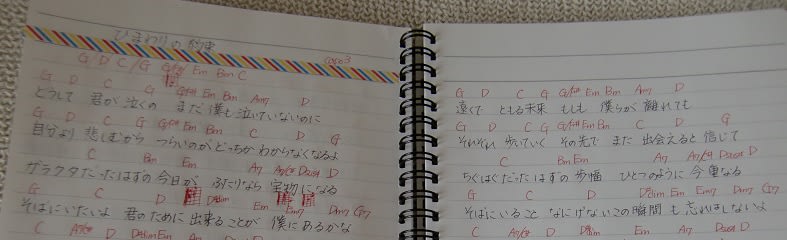 ひまわりの約束
G/D/C/G G/F# Em Bm C capo3
G D C G G/F# Em Bm Am7 D
どうして 君が泣くの まだ僕も泣いていないのに
G D C G G/F# Em Bm C D G
自分より 悲しむから つらいのがどっちかわからなくなるよ
C Bm Em A7 A7/C# Dsus4 D
ガラクタだったはずの今日が ふたりなら 宝物になる
G C D D#dim Em Em7 Dm7 G7
そばにいたいよ 君のために出来ることが 僕にあるかな
C A7/C# D D#dim Em
G D C G G/F# Em Bm Am7 D
遠くで ともる未来 もしも 僕らが離れても
G D C G G/F# Em Bm C D G
それぞれ 歩いていく その先で また 出会えると信じて
C Bm Em A7 A7/C# Dsus4 D
ちぐはぐだったはずの歩幅 ひとつのように 今 重なる
G C D D#dim Em Em7 Dm7 G7
そばにいること なにげないこの瞬間も 忘れはしないよ
C A7/C# D D#dim Em